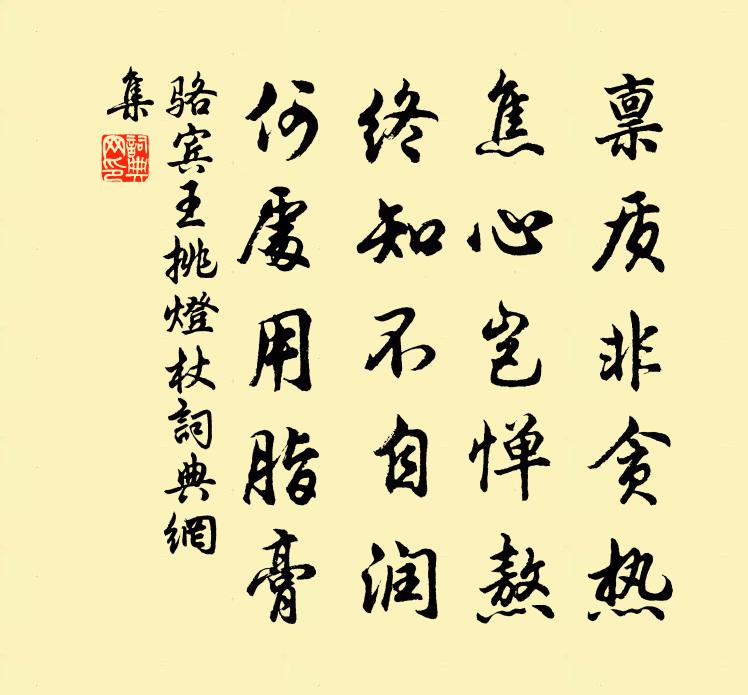 禀质非贪热
焦心岂惮熬
终知不自润
何處用脂膏
骆宾王挑燈杖詞典網
集
詞典
网印